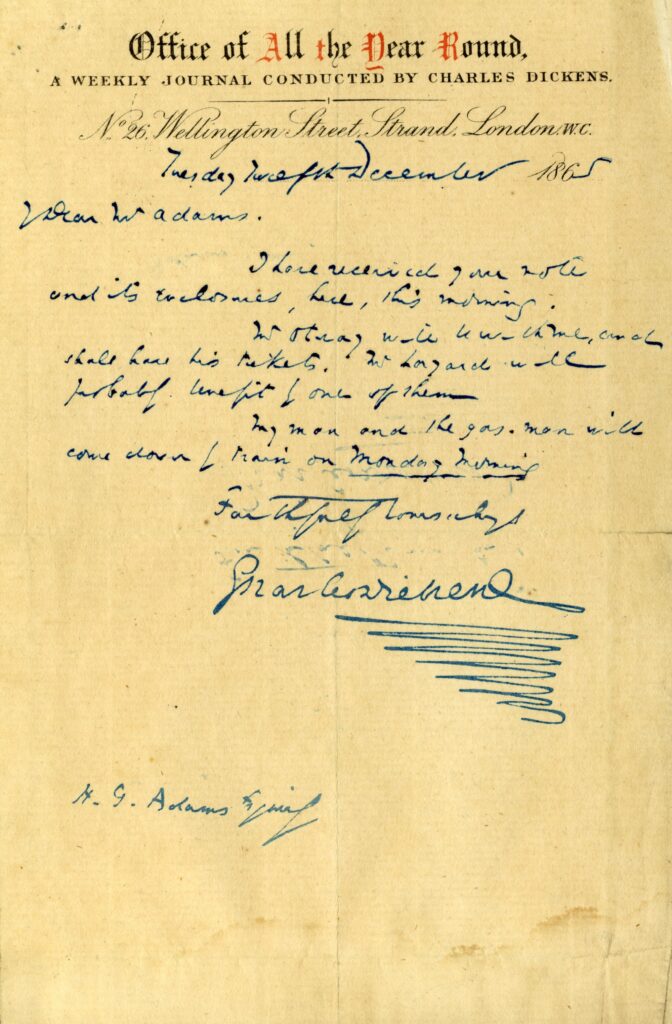 Office of All the Year Round,
A WEEKLY JOURNAL CONDUCTED BY CHARLES DICKENS.
No. 26, Wellington Street, Strand, London, W.C.
Tuesday Twelfth December 1865
My Dear Mr Adams.
I have received your note
and its enclosures, here, this morning.
Mr will be with me, and
shall have his tickets. Mr will
probably benefit by one of them
My man and the gas-man will
come down by train on Monday Morning
Faithfully Yours always
Charles Dickens
H. G. Adams Esquire